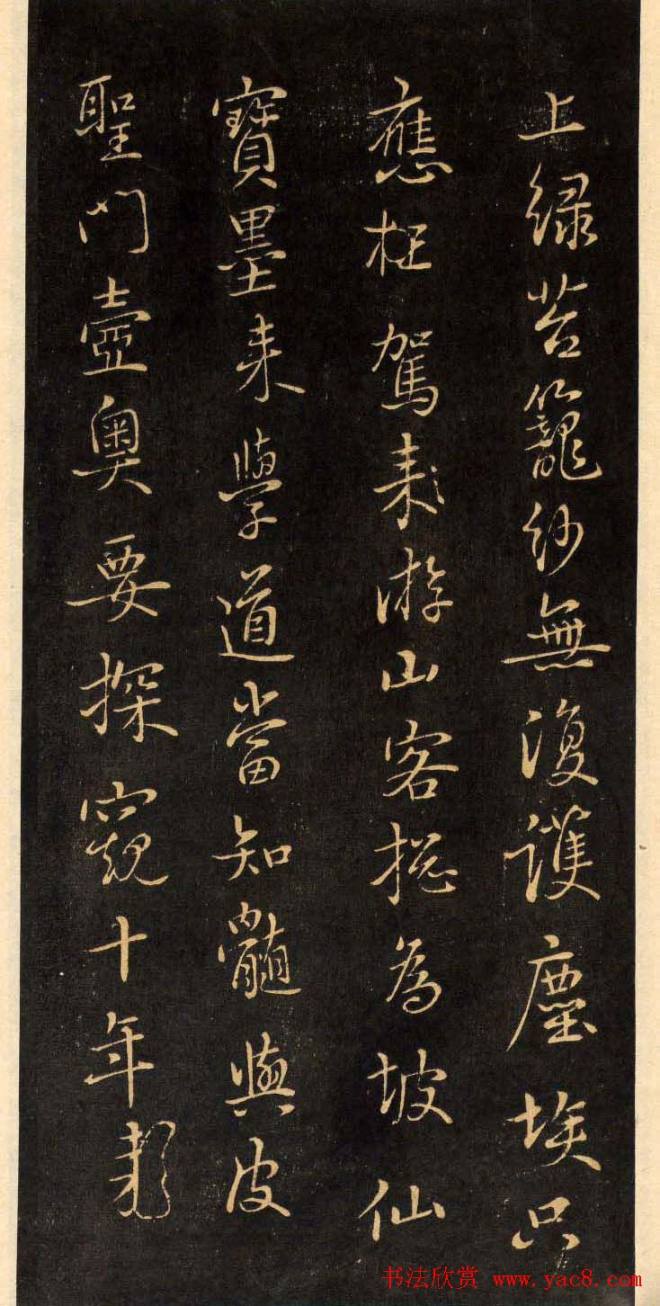 上綠苔籠紗無復護塵埃只
應枉駕來游山客揔為坡仙
寶墨来學道當知髓與皮
聖門壼奧要探窺十年
书法欣赏 www.yac8.com